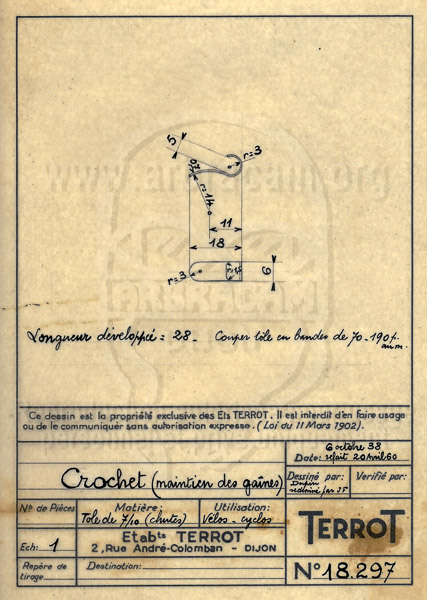 5
r=3
0,7
r=14
11
18
r=3
6
www.
.org
ARBRACAM
DIJON
Longueur développée = 28 _ Couper tôle en bandes de 70 _ 190 p.
au m.
Ce dessin est la propriété exclusive des Ets TERROT. Il est interdit d'en faire usage
ou de le communiquer sans autorisation expresse. (Loi du 11 Mars 1902).
Crochet (maintien des gaînes)
6 octobre 38
Date: refait 20 Avril 60
Dessiné par:
Vérifié par:
redessiné par JS
Nº de Pièces
Matière:
Tôle de 7/10 (chutes)
Utilisation:
Vélos - cyclos
TERROT
Ech: 1
Etabts TERROT
2, Rue André-Colomban - DIJON
Repère de
tirage
Destination:
Nº 18.297